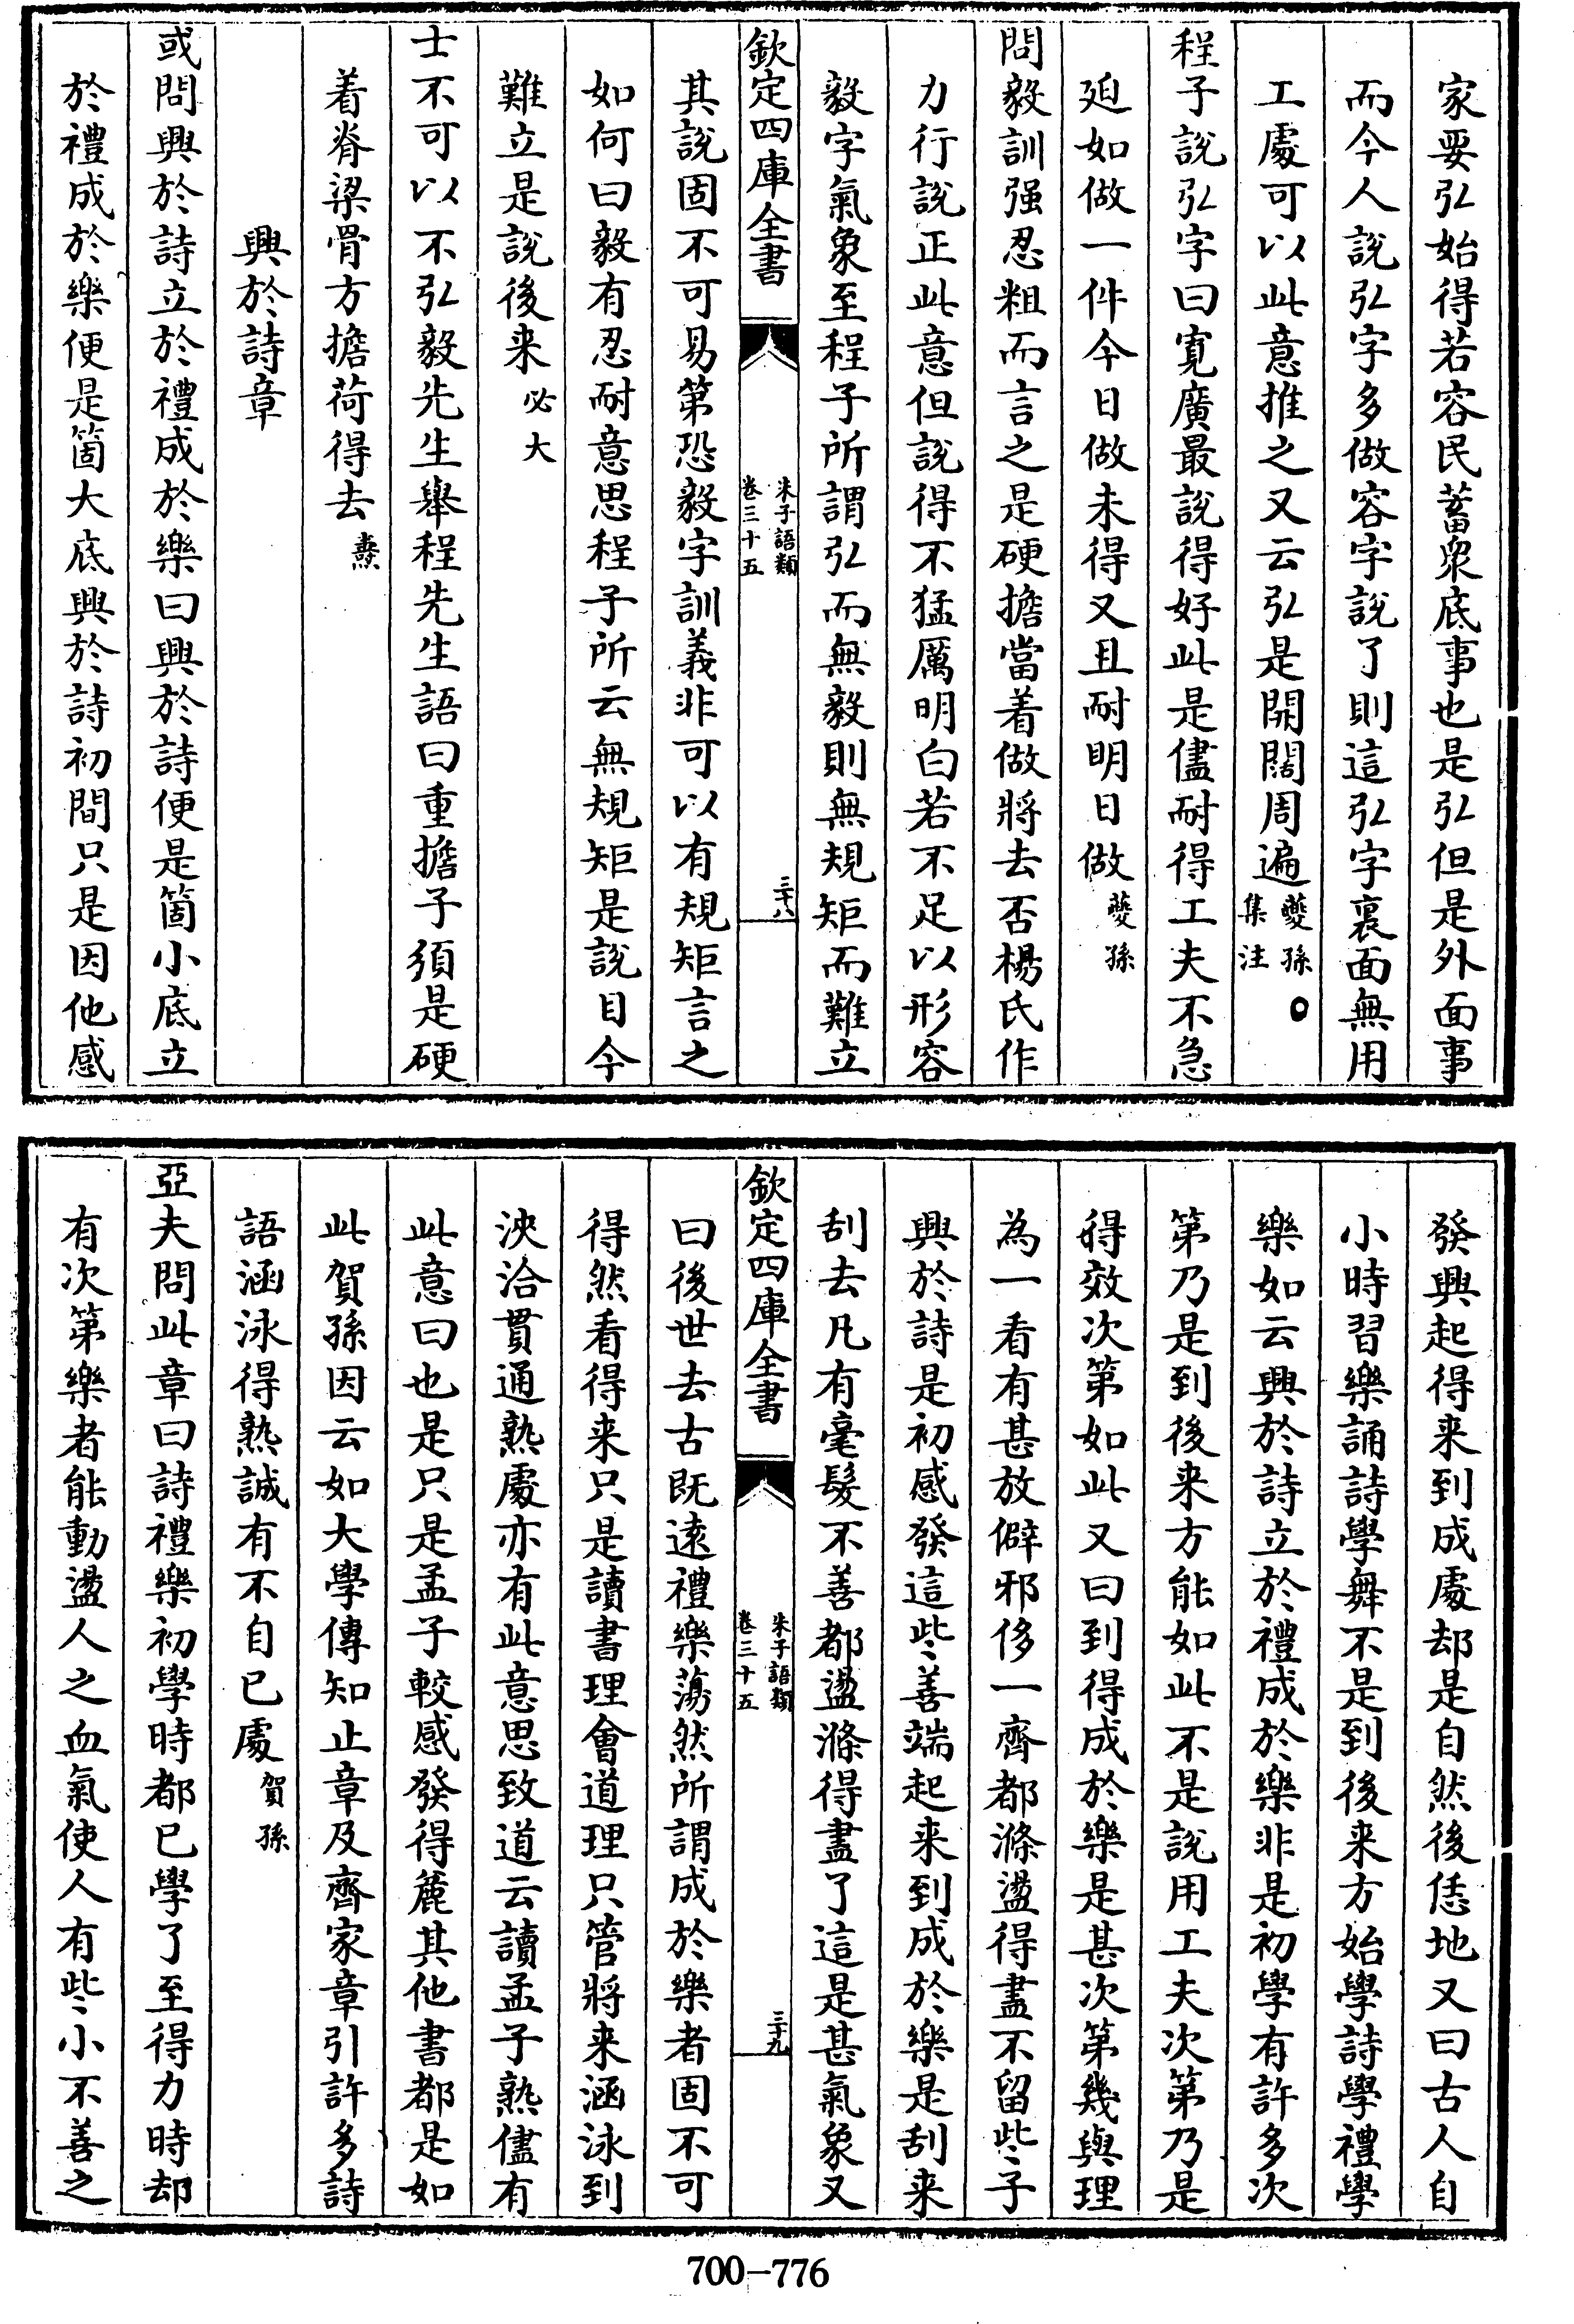 家要弘始得若容民蓄衆底事也是弘但是外面事
而今人說弘字多做容字說了則這弘字裏面無用
工處可以此意推之又云弘是開闊周遍夔孫○集注
程子說弘字曰寬廣最說得好此是儘耐得工夫不急
廹如做一件今日做未得又且耐明日做夔孫
問毅訓强忍粗而言之是硬擔當着做將去否楊氏作
力行說正此意但說得不猛厲明白若不足以形容
毅字氣象至程子所謂弘而無毅則無規矩而難立
欽定四庫全書
朱子語類
卷三十五
三十八
其說固不可易第恐毅字訓義非可以有規矩言之
如何曰毅有忍耐意思程子所云無規矩是說目今
難立是說後来必大
士不可以不弘毅先生舉程先生語曰重擔子須是硬
着脊梁骨方擔荷得去燾
興於詩章
或問興於詩立於禮成於樂曰興於詩便是箇小底立
於禮成於樂便是箇大底興於詩初間只是因他感
發興起得来到成處却是自然後恁地又曰古人自
小時習樂誦詩學舞不是到後来方始學詩學禮學
樂如云興於詩立於禮成於樂非是初學有許多次
第乃是到後来方能如此不是說用工夫次第乃是
得效次第如此又曰到得成於樂是甚次第幾與理
為一看有甚放僻邪侈一齊都滌盪得盡不留些子
興於詩是初感發這些善端起来到成於樂是刮来
刮去凡有毫髮不善都盪滌得盡了這是甚氣象又
欽定四庫全書
朱子語類
卷三十五
三十九
曰後世去古既遠禮樂蕩然所謂成於樂者固不可
得然看得来只是讀書理會道理只管將来涵泳到
浹洽貫通熟處亦有此意思致道云讀孟子熟儘有
此意曰也是只是孟子較感發得麄其他書都是如
此賀孫因云如大學傳知止章及齊家章引許多詩
語涵泳得熟誠有不自已處賀孫
亞夫問此章曰詩禮樂初學時都已學了至得力時却
有次第樂者能動盪人之血氣使人有些小不善之
700-776